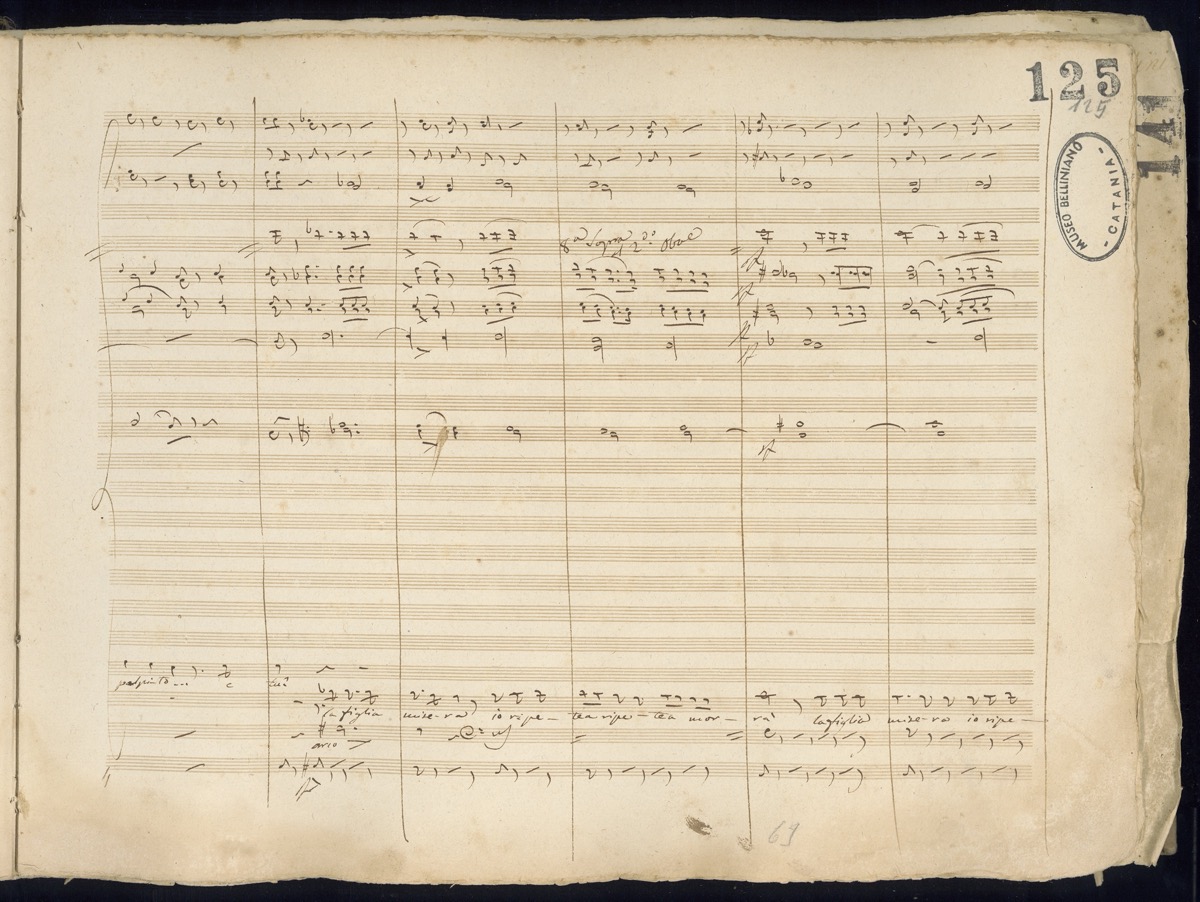 125
125
141
MUSEO BELLINIANO
- CATANIA -
8ª Sopra 2do: oboe
palpito
la figlia misera io ripe- tea ripe- tea mor- rà la figlia misera io ripe-
arco
69